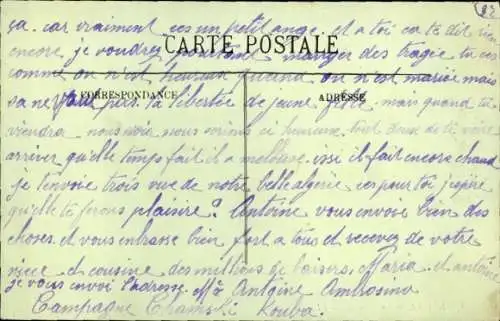 ça. car vraiment ces un petit ange. et a toi ca te dit rien
encore, je voudrez manger des tragée tu ces
CARTE POSTALE
comme on n'est heureux quand on n'est mariée mais
CORRESPONDANCE
ADRESSE
sa ne vaut pas la libertée de jeune fille, mais quand tu
viendra nous voir nous serions si heureuse tout deux de te voire
arriver qu'elle temps fait il a melbourne issi il fait encore chaud
je t'envoie trois vue de notre belle algerie ces pour toi j'espère
qu'elle te ferons plaisire? Antoine vous envoie bien des
choses et vous embrasse bien fort a tous et recevez de votre
niece et cousine des millions de baisers Maria et antoine
je vous envoi l'adresse Mr Antoine Ambrosino
Campagne Kouba